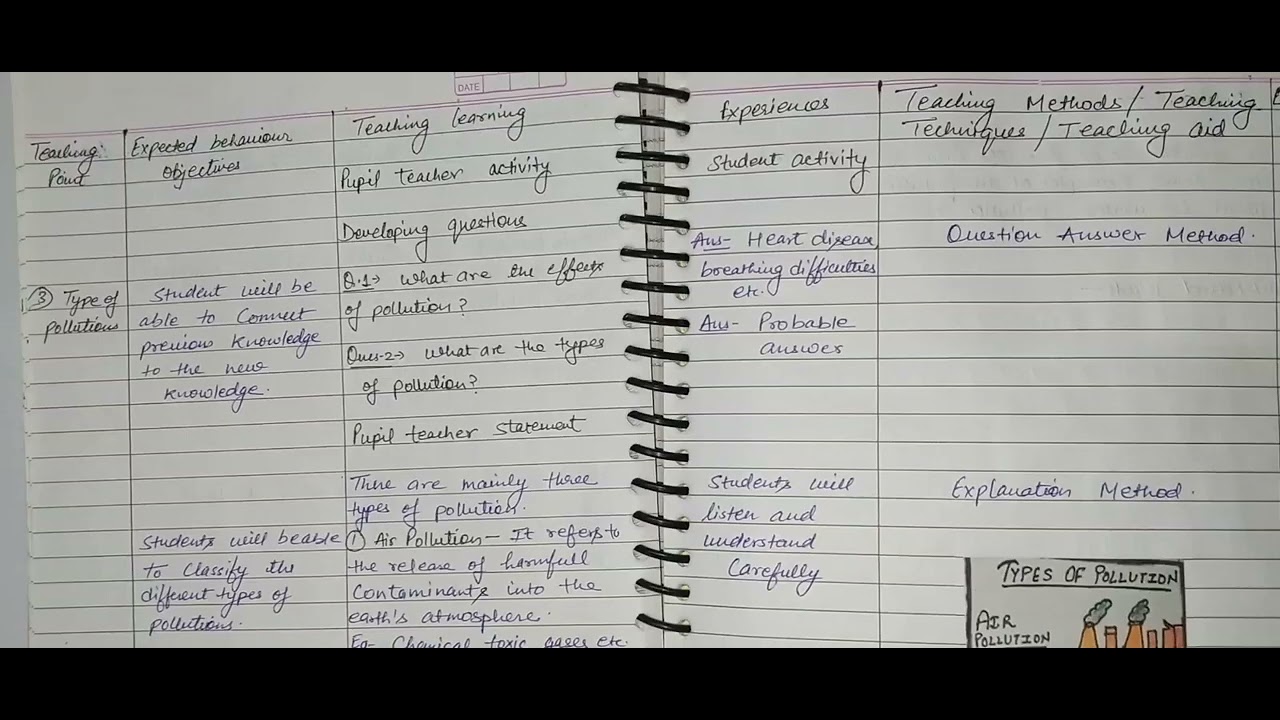 DATE
Teaching
Point
Expected behaviour
Objectives
Teaching learning
Pupil teacher activity
Experiences
Student activity
Teaching Methods/ Teaching
Techniques/ Teaching aid
③ Type of
pollutions
Student will be
able to Connect
previous knowledge
to the new
knowledge.
Students will beable
to Classify the
different types of
pollutions.
Developing questions
Q.1→ What are the effects
of pollution?
Ques-2→ What are the types
of pollution?
Pupil teacher statement
There are mainly three
types of pollution.
① Air Pollution – It refers to
the release of harmfull
Contaminants into the
earth's atmosphere.
Eg- Chemical toxic gases etc.
Ans- Heart disease,
breathing difficulties
etc.
Ans- Probable
answer
Students will
listen and
understand
Carefully
Question Answer Method.
Explanation Method.
TYPES OF POLLUTION
AIR
POLLUTION